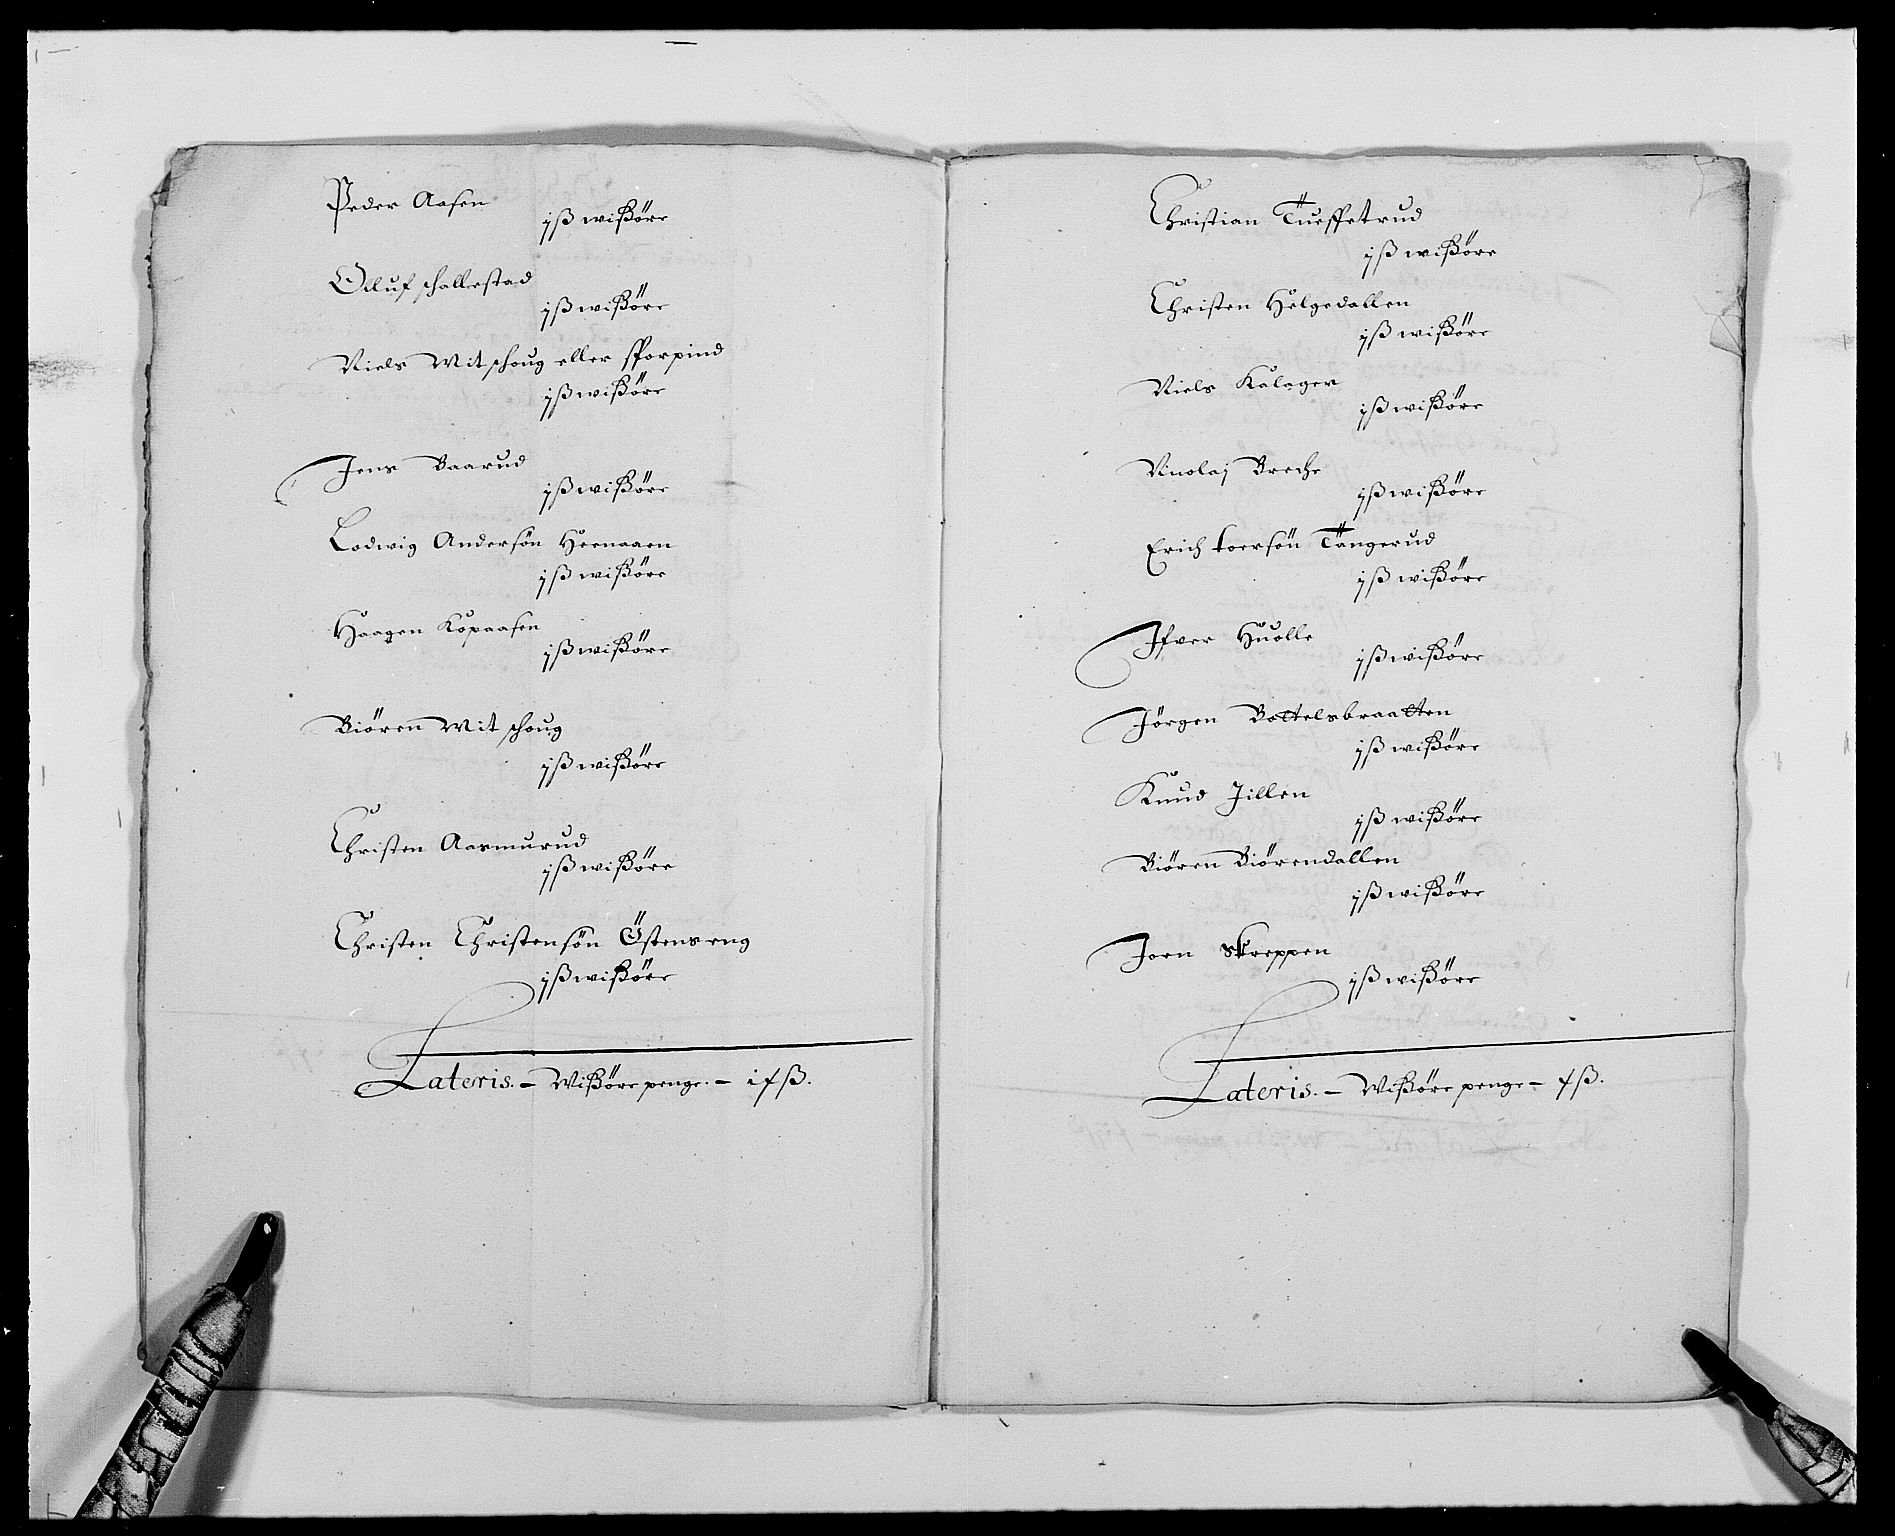 Peder Aasen
jß wißöre
Olluf schallestad
jß wißöre
Niels Witschoug eller sporpind
jß wißöre
Jens Baarud
jß wißöre
Lodwig Andersön Heernaaen
jß wißöre
Haagen Kopaasen
jß wißöre
Biörenn Witschoug
jß wißöre
Christen Aasmurud
jß wißöre
Christen Christensön Östenseng
jß wißöre
Lateris. – Wißöre penge. –
Christian Tueffetrud
jß wißöre
Christen Helgedallen
jß wißöre
Niels Kalager
jß wißöre
Nicolaj Breche
jß wißöre
Erich toersön Tangerud
jß wißöre
Ifver Huolle
jß wißöre
Jörgen Bottelsbraatten
jß wißöre
Knud Jillen
jß wißöre
Biörenn Biörendallen
jß wißöre
Joen Skreppen
jß wißöre
Lateris. – Wißöre penge –